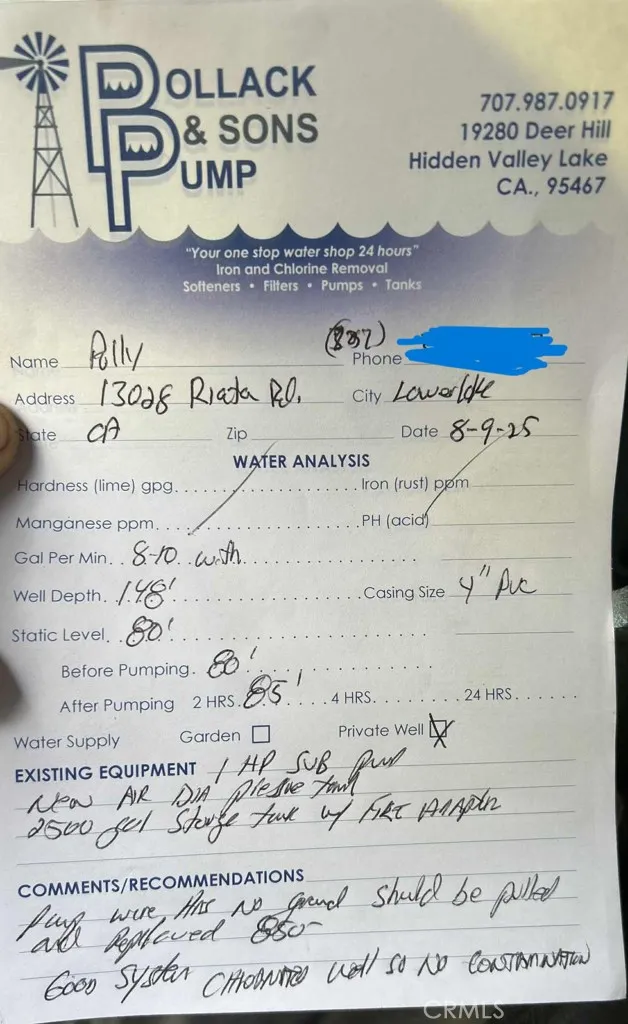 POLLACK
& SONS
PUMP
707.987.0917
19280 Deer Hill
Hidden Valley Lake
CA., 95467
"Your one stop water shop 24 hours"
Iron and Chlorine Removal
Softeners • Filters • Pumps • Tanks
Name Polly Phone
Address 13028 Riata Rd. City Lowerlake
State CA Zip Date 8-9-25
WATER ANALYSIS
Hardness (lime) gpg Iron (rust) ppm
Manganese ppm PH (acid)
Gal Per Min 8-10 with
Well Depth 148' Casing Size 4" PVC
Static Level 80'
Before Pumping 80'
After Pumping 2 HRS 85' 4 HRS 24 HRS
Water Supply Garden Private Well X
EXISTING EQUIPMENT 1 HP SUB pump
New AIR DIA tank
2500 gal Storage tank w/ FIRE Adapter
COMMENTS/RECOMMENDATIONS
Pump wire Has No ground should be pulled
and Replaced 850-
Good System Well so No CONTAMINATION
CRMLS